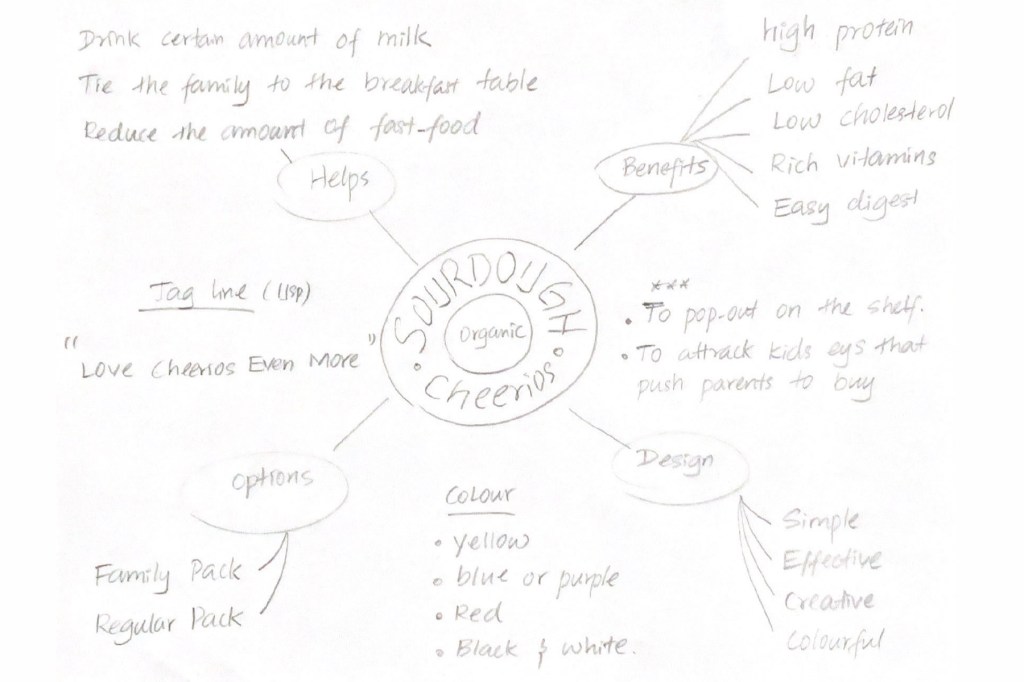 Drink certain amount of milk
Tie the family to the breakfast table
Reduce the amount of fast-food
Helps
high protein
Low fat
Low cholesterol
Rich vitamins
Easy digest
Benefits
SOURDOUGH
Organic
Cheerios
Tag line (USP)
"Love Cheerios Even More"
***
• To pop-out on the shelf.
• To attrack kids eys that
push parents to buy
Options
Family Pack
Regular Pack
Colour
• yellow
• blue or purple
• Red
• Black & white.
Design
Simple
Effective
Creative
Colourful